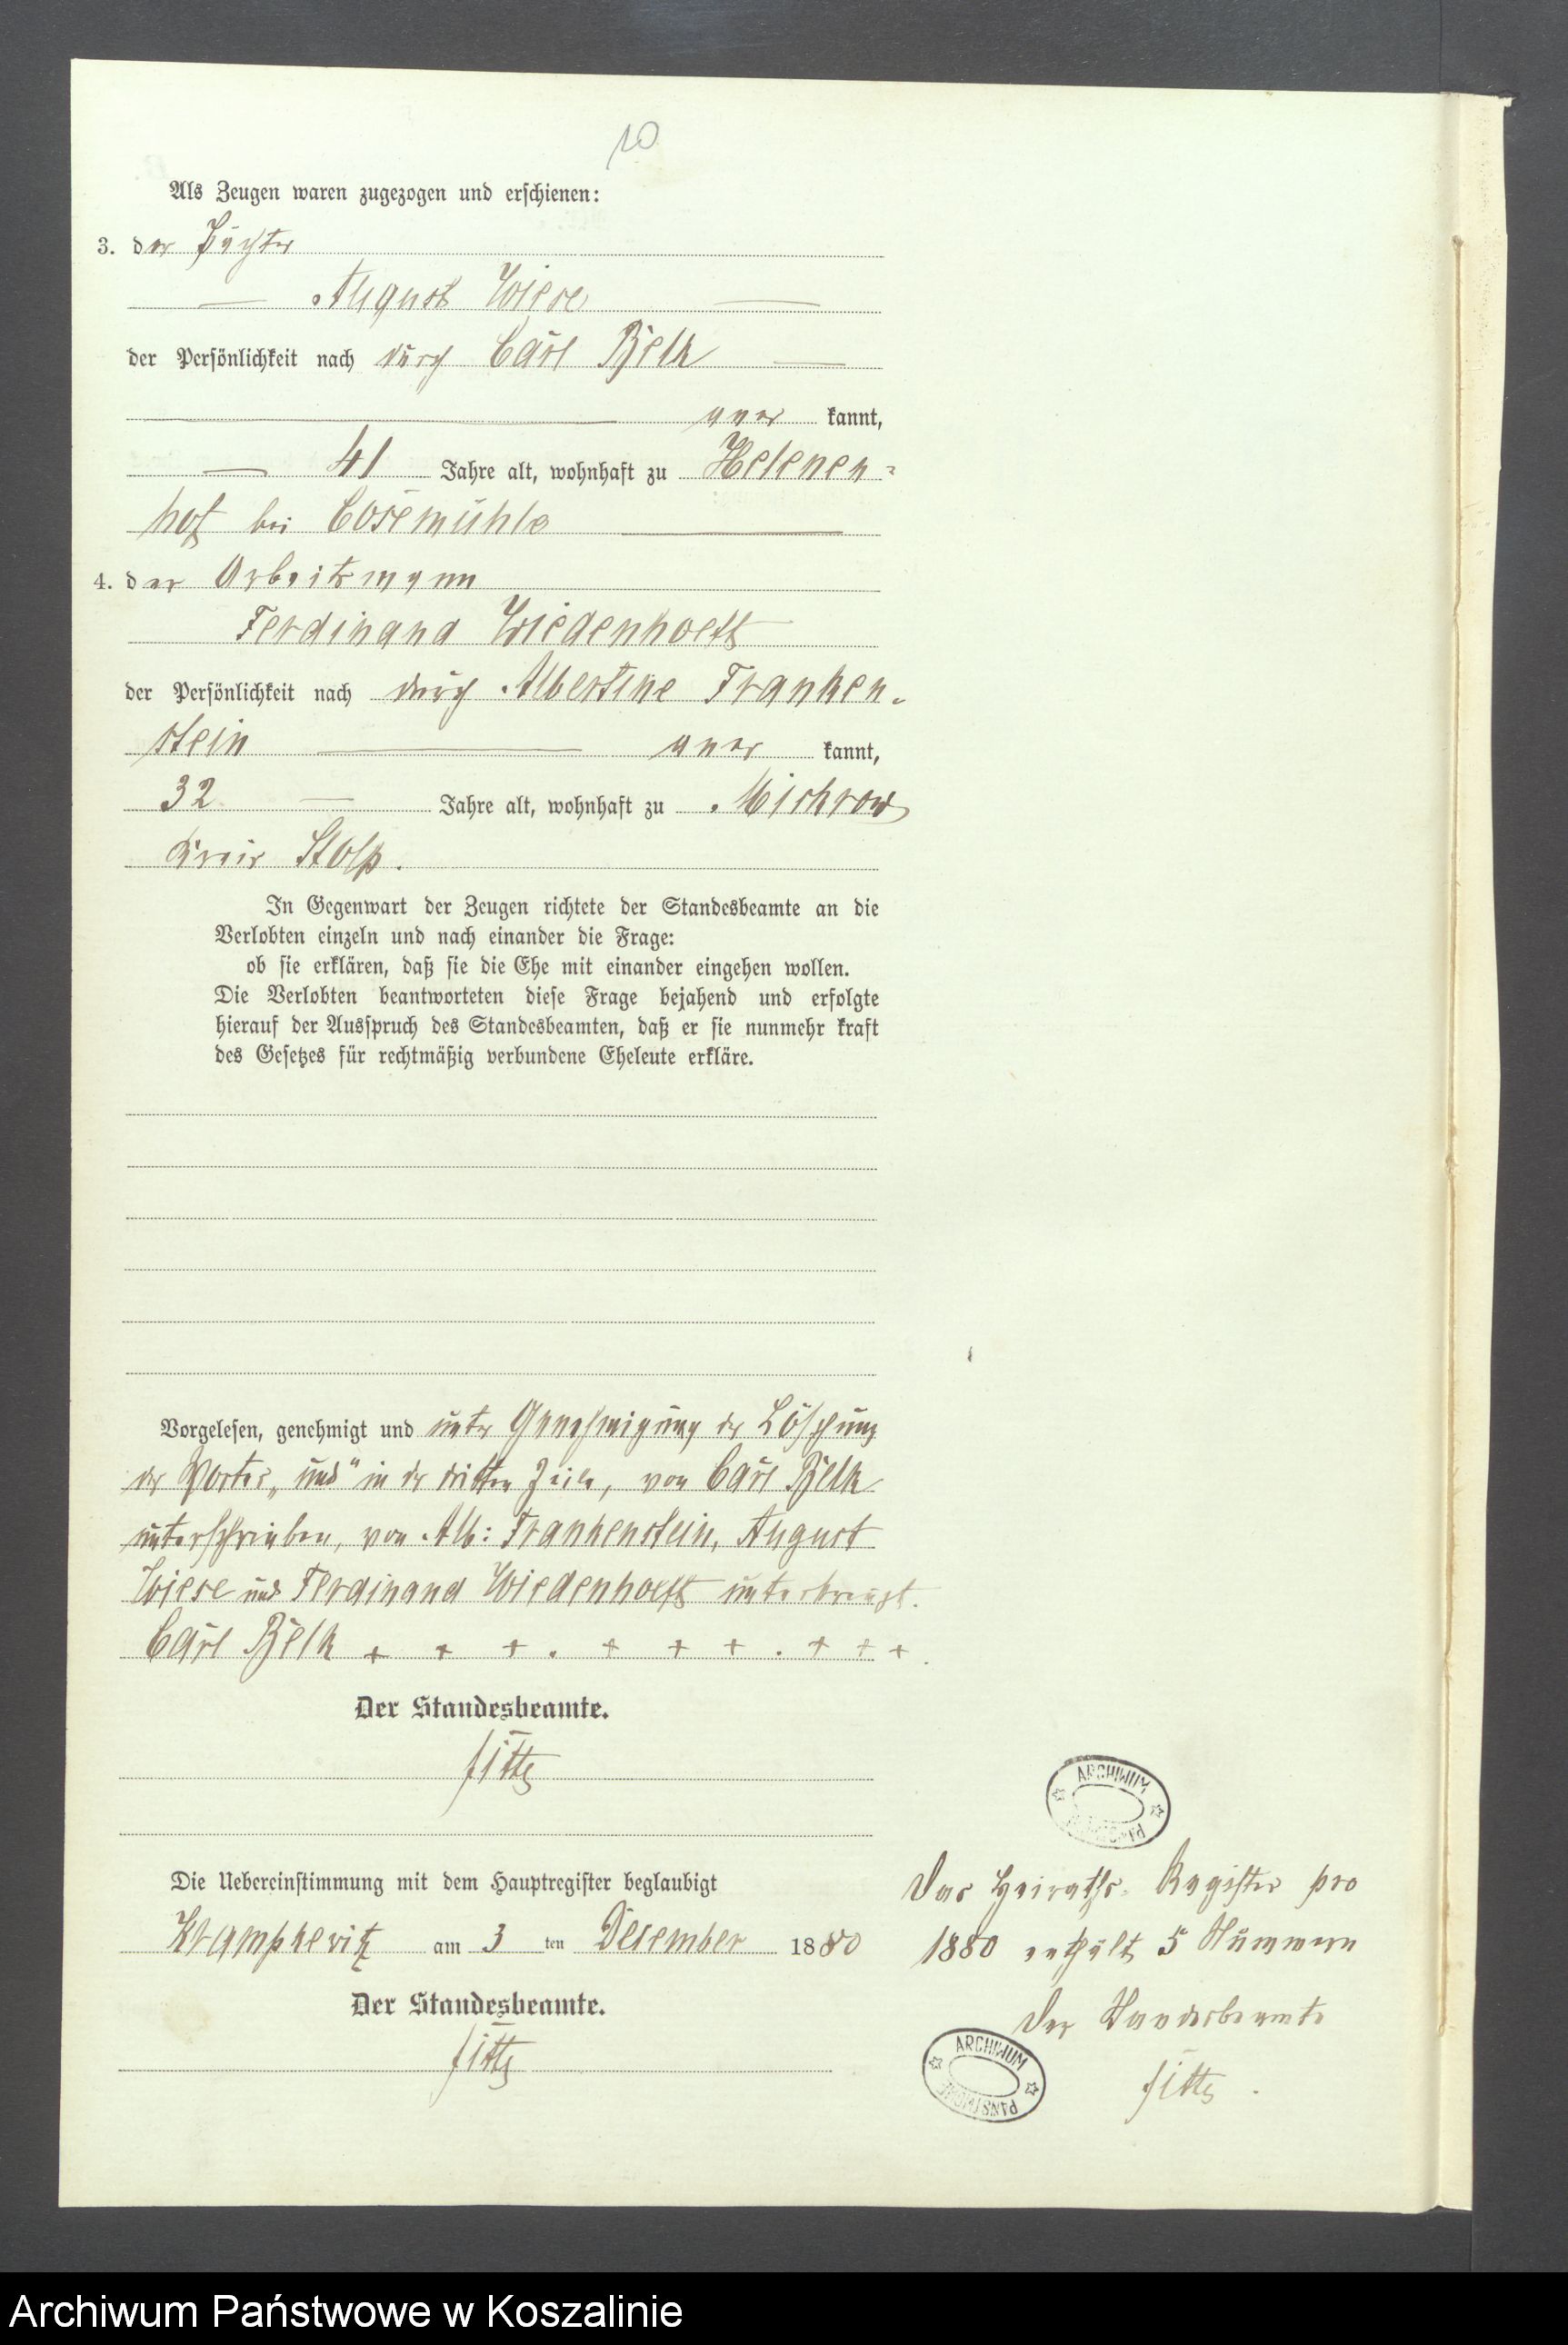 10
Als Zeugen waren zugezogen und erschienen:
3. der Pächter
August Wiese
der Persönlichkeit nach durch Carl Bielk
aner kannt,
41 Jahre alt, wohnhaft zu Helenen-
hof bei Cosemühle
4. der Arbeitsmann
Ferdinand Wiedenhoeft
der Persönlichkeit nach durch Albertine Franken-
stein aner kannt,
32 Jahre alt, wohnhaft zu Mickrow
Kreis Stolp.
In Gegenwart der Zeugen richtete der Standesbeamte an die
Verlobten einzeln und nach einander die Frage:
ob sie erklären, daß sie die Ehe mit einander eingehen wollen.
Die Verlobten beantworteten diese Frage bejahend und erfolgte
hierauf der Ausspruch des Standesbeamten, daß er sie nunmehr kraft
des Gesetzes für rechtmäßig verbundene Eheleute erkläre.
Vorgelesen, genehmigt und unter Genehmigung der Löschung
des Wortes „und" in der dritten Zeile, von Carl Bielk
unterschrieben, von Alb: Frankenstein, August
Wiese und Ferdinand Wiedenhoeft unterkreuzt.
Carl Bielk + + + . + + + . + + + .
Der Standesbeamte.
Die Uebereinstimmung mit dem Hauptregister beglaubigt
Krampkewitz am 3 ten Dezember 1880
Der Standesbeamte.
ARCHIWUM PAŃSTWOWE
Das Heiraths-Register pro
1880 enthält 5 Nummern
Der Standesbeamte
ARCHIWUM PAŃSTWOWE
Archiwum Państwowe w Koszalinie